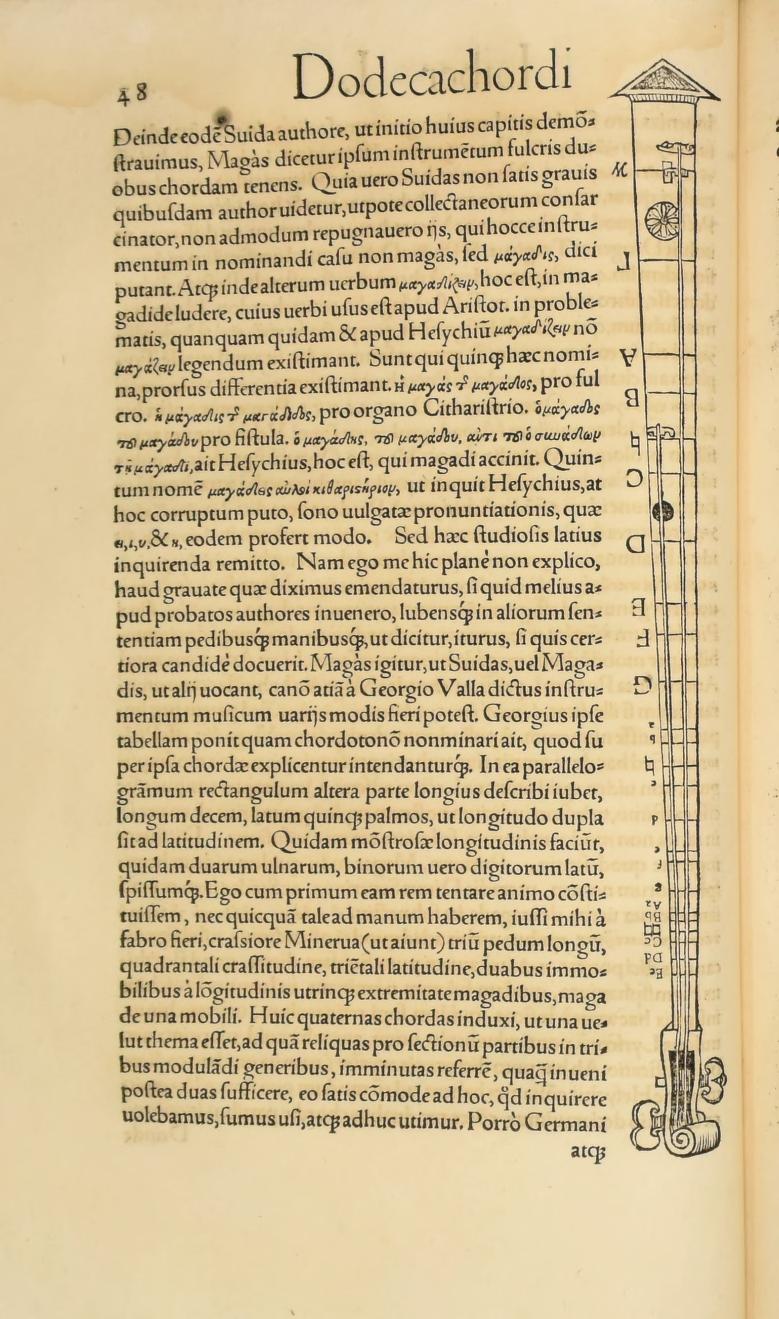 48 Dodecachordi
Deinde eodē Suida authore, ut initio huius capitis demō⸗
ſtrauimus, Magàs dicetur ipſum inſtrumētum fulcris du⸗
obus chordam tenens. Quia uero Suidas non ſatis grauis
quibuſdam author uidetur, utpote collectaneorum conſar
cinator, non admodum repugnauero ijs, qui hocce inſtru⸗
mentum in nominandi caſu non magàs, ſed μάγαδις, dici
putant. Atqꝫ inde alterum uerbum μαγαδίζειν, hoc eſt, in ma⸗
gadide ludere, cuius uerbi uſus eſt apud Ariſtot. in proble⸗
matis, quanquam quidam & apud Heſychiū μαγαδίζειν nō
μαγάζειν legendum exiſtimant. Sunt qui quinqꝫ hæc nomi⸗
na, prorſus differentia exiſtimant. ἡ μαγάς τ͂ μαγάδος, pro ful
cro. ἡ μάγαδις τ͂ μαγάδιδος, pro organo Cithariſtrio. ὁ μάγαδος
τοῦ μαγάδου pro fiſtula. ὁ μαγάδης, τοῦ μαγάδου, ἀντι τοῦ ὁ συνάδων
τῇ μάγαδι, ait Heſychius, hoc eſt, qui magadi accinit. Quin⸗
tum nomē μαγάδεις αὐλοὶ κιθαριστήριοι, ut inquit Heſychius, at
hoc corruptum puto, ſono uulgatæ pronuntiationis, quæ
ει, ι, υ, & η, eodem profert modo. Sed hæc ſtudioſis latius
inquirenda remitto. Nam ego me hic planè non explico,
haud grauate quæ diximus emendaturus, ſi quid melius a⸗
pud probatos authores inuenero, lubensqꝫ in aliorum ſen⸗
tentiam pedibusqꝫ manibusqꝫ, ut dicitur, iturus, ſi quis cer⸗
tiora candidè docuerit. Magàs igitur, ut Suidas, uel Maga⸗
dis, ut alij uocant, canō atiā à Georgio Valla dictus inſtru⸗
mentum muſicum uarijs modis fieri poteſt. Georgius ipſe
tabellam ponit quam chordotonō nominari ait, quod ſu
per ipſa chordæ explicentur intendanturqꝫ. In ea parallelo⸗
grāmum rectangulum altera parte longius deſcribi iubet,
longum decem, latum quinqꝫ palmos, ut longitudo dupla
ſit ad latitudinem. Quidam mōſtroſæ longitudinis faciūt,
quidam duarum ulnarum, binorum uero digitorum latū,
ſpiſſumqꝫ. Ego cum primum eam rem tentare animo cōſti⸗
tuiſſem, nec quicquā tale ad manum haberem, iuſſi mihi à
fabro fieri, craſsiore Minerua (ut aiunt) triū pedum longū,
quadrantali craſſitudine, triētali latitudine, duabus immo⸗
bilibus à lōgitudinis utrinqꝫ extremitate magadibus, maga
de una mobili. Huic quaternas chordas induxi, ut una ue⸗
lut thema eſſet, ad quā reliquas pro ſectionū partibus in tri⸗
bus modulādi generibus, imminutas referrē, quaq̄ inueni
poſtea duas ſufficere, eo ſatis cōmode ad hoc, q̊d inquirere
uolebamus, ſumus uſi, atqꝫ adhuc utimur. Porrò Germani
atqꝫ
M
Γ
A
B
♮
C
D
E
F
G
a
b
♮
c
d
e
f
g
Aa
Bb
♮♮
Cc
Dd
Ee